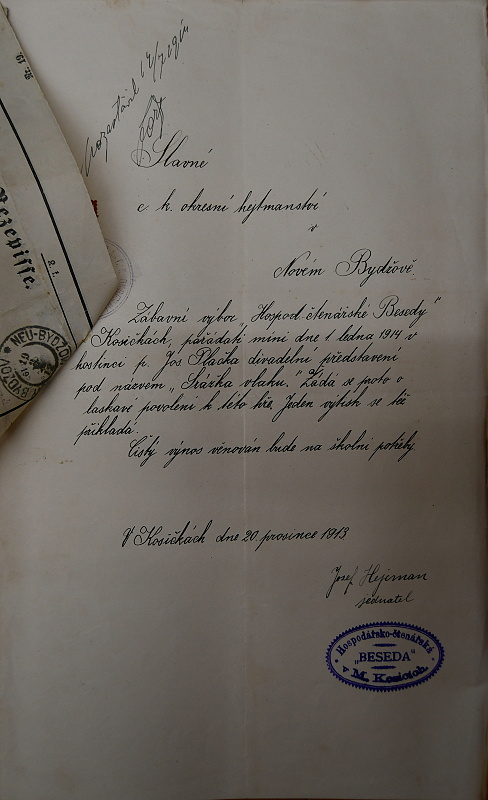 Slavné
c. k. okresní hejtmanství
v
Novém Bydžově
Zábavní výbor „Hospod. čtenářské Besedy"
Kosičkách, pořádati míní dne 1 ledna 1914 v
hostinci p. Jos Plačka divadelní představení
pod názvem „Srážka vlaků." Žádá se proto o
laskavé povolení k této hře. Jeden výtisk se též
přikládá.
Čistý výnos věnován bude na školní potřeby.
V Kosičkách dne 20. prosince 1913
Josef Hejman
jednatel
Hospodářsko-čtenářská
"BESEDA"
v M. Kosičkách.
Rezepisse.
NEU-BYDŽOV